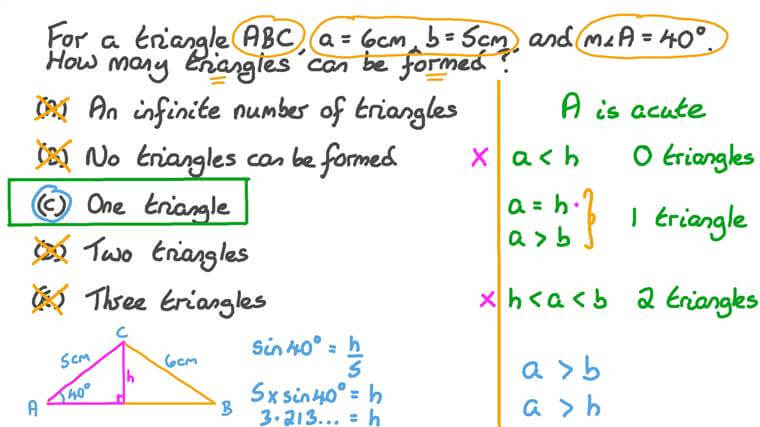 For a triangle ABC, a = 6cm, b = 5cm, and m∠A = 40°.
How many triangles can be formed?
(A) An infinite number of triangles
(B) No triangles can be formed
(C) One triangle
(D) Two triangles
(E) Three triangles
A is acute
x a < h 0 triangles
a = h
a > b } 1 triangle
x h < a < b 2 triangles
C
5cm
6cm
h
40°
A
B
sin 40° = h/5
5 x sin 40° = h
3.213... = h
a > b
a > h